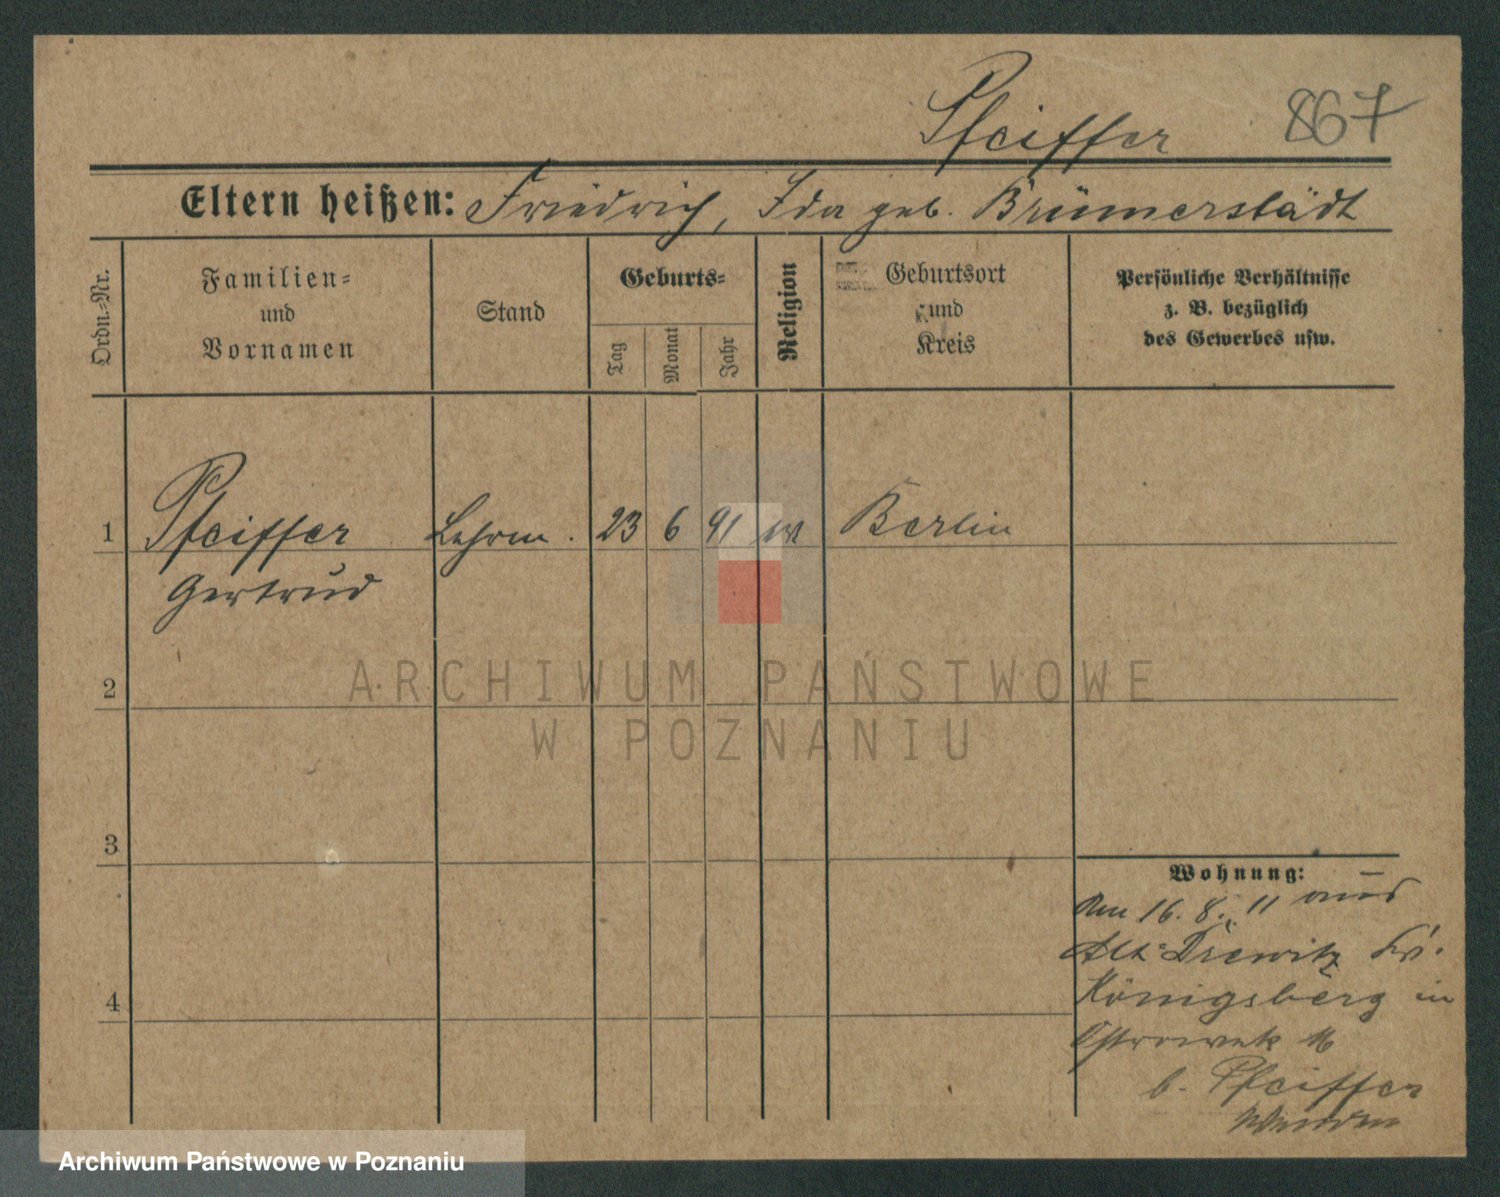 Pfeiffer 867
Eltern heißen: Friedrich, Ida geb. Brümerstädt
Ordn.-Nr.
Familien-
und
Vornamen
Stand
Geburts-
Tag
Monat
Jahr
Religion
Geburtsort
und
Kreis
Persönliche Verhältnisse
z. B. bezüglich
des Gewerbes usw.
1 Pfeiffer Lehrm. 23 6 91 Berlin
Gertrud
2
3
4
Wohnung:
Am 16. 8. 11 aus
Alt-Drewitz Kr.
Königsberg in
Ostrowek 16
b. Pfeiffer
ARCHIWUM PAŃSTWOWE
W POZNANIU
Archiwum Państwowe w Poznaniu